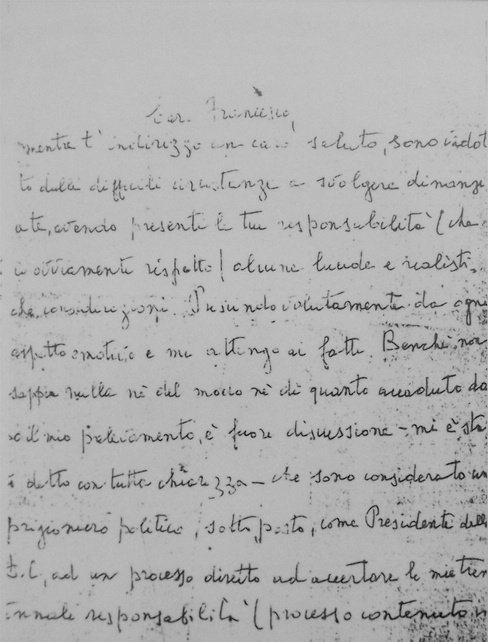 Caro Francesco,
mentre t'indirizzo un caro saluto, sono indot
to dalle difficili circostanze a svolgere dinanzi
a te, avendo presenti le tue responsabilità (che
io ovviamente rispetto) alcune lucide e realisti
che considerazioni. Prescindo volutamente da ogni
aspetto emotivo e mi attengo ai fatti. Benché non
sappia nulla nè del modo nè di quanto accaduto do
po il mio prelevamento, è fuori discussione - mi è sta
to detto con tutta chiarezza - che sono considerato un
prigioniero politico, sottoposto, come Presidente della
D.C., ad un processo diretto ad accertare le mie tren
tennali responsabilità (processo contenuto